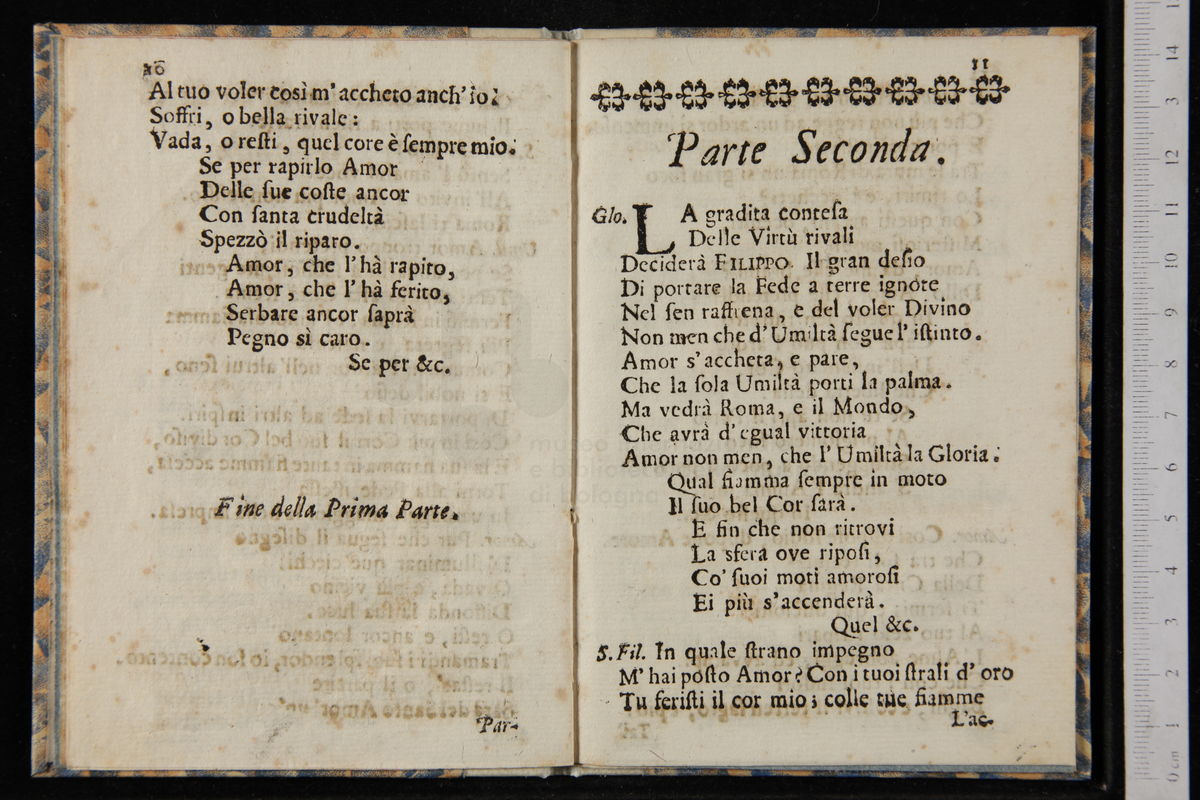 10
Al tuo voler così m' accheto anch' io;
Soffri, o bella rivale:
Vada, o resti, quel core è sempre mio.
Se per rapirlo Amor
Delle sue coste ancor
Con santa crudeltà
Spezzò il riparo.
Amor, che l' hà rapito,
Amor, che l' hà ferito,
Serbare ancor saprà
Pegno sì caro.
Se per &c.
Fine della Prima Parte.
Par-
11
Parte Seconda.
Glo. LA gradita contesa
Delle Virtù rivali
Deciderà FILIPPO. Il gran desio
Di portare la Fede a terre ignote
Nel sen raffrena, e del voler Divino
Non men che d' Umiltà segue l' istinto.
Amor s' accheta, e pare,
Che la sola Umiltà porti la palma.
Ma vedrà Roma, e il Mondo,
Che avrà d' egual vittoria
Amor non men, che l' Umiltà la Gloria.
Qual fiamma sempre in moto
Il suo bel Cor sarà.
E fin che non ritrovi
La sfera ove riposi,
Co' suoi moti amorosi
Ei più s' accenderà.
Quel &c.
S. Fil. In quale strano impegno
M' hai posto Amor? Con i tuoi strali d' oro
Tu feristi il cor mio; colle tue fiamme
L'ac-